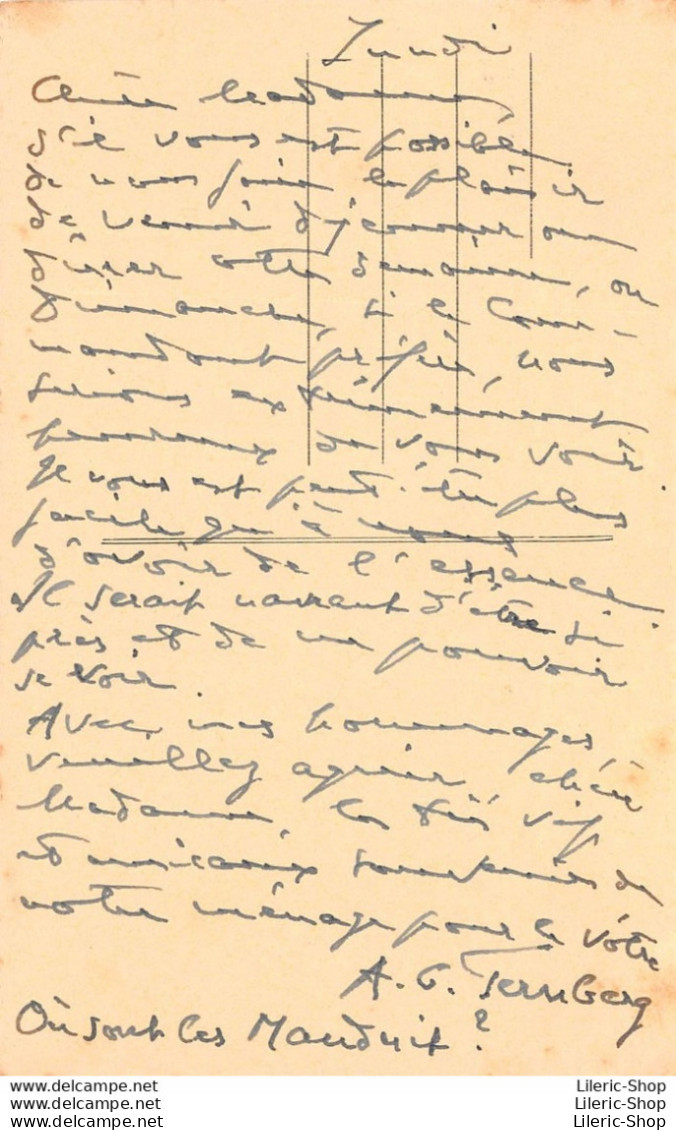 Lundi
Chère Madame,
s'il vous est possible
de nous faire le plaisir
de venir déjeuner un
jour cette semaine, ou
Dimanche, si le Com-
mandant préfère, nous
serions extrêmement
heureux de vous voir.
Il vous est peut-être plus
facile qu'à nous
d'avoir de l'essence.
Il serait navrant d'être si
près et de ne pouvoir
se voir.
Avec mes hommages,
veuillez agréer, chère
Madame, les très vifs
et amicaux souvenirs de
notre ménage pour le vôtre
A. G. Fernberg
Où sont les Mauduit?
delcampe.net
delcampe.net
delcampe.net
Lileric-Shop
Lileric-Shop
Lileric-Shop